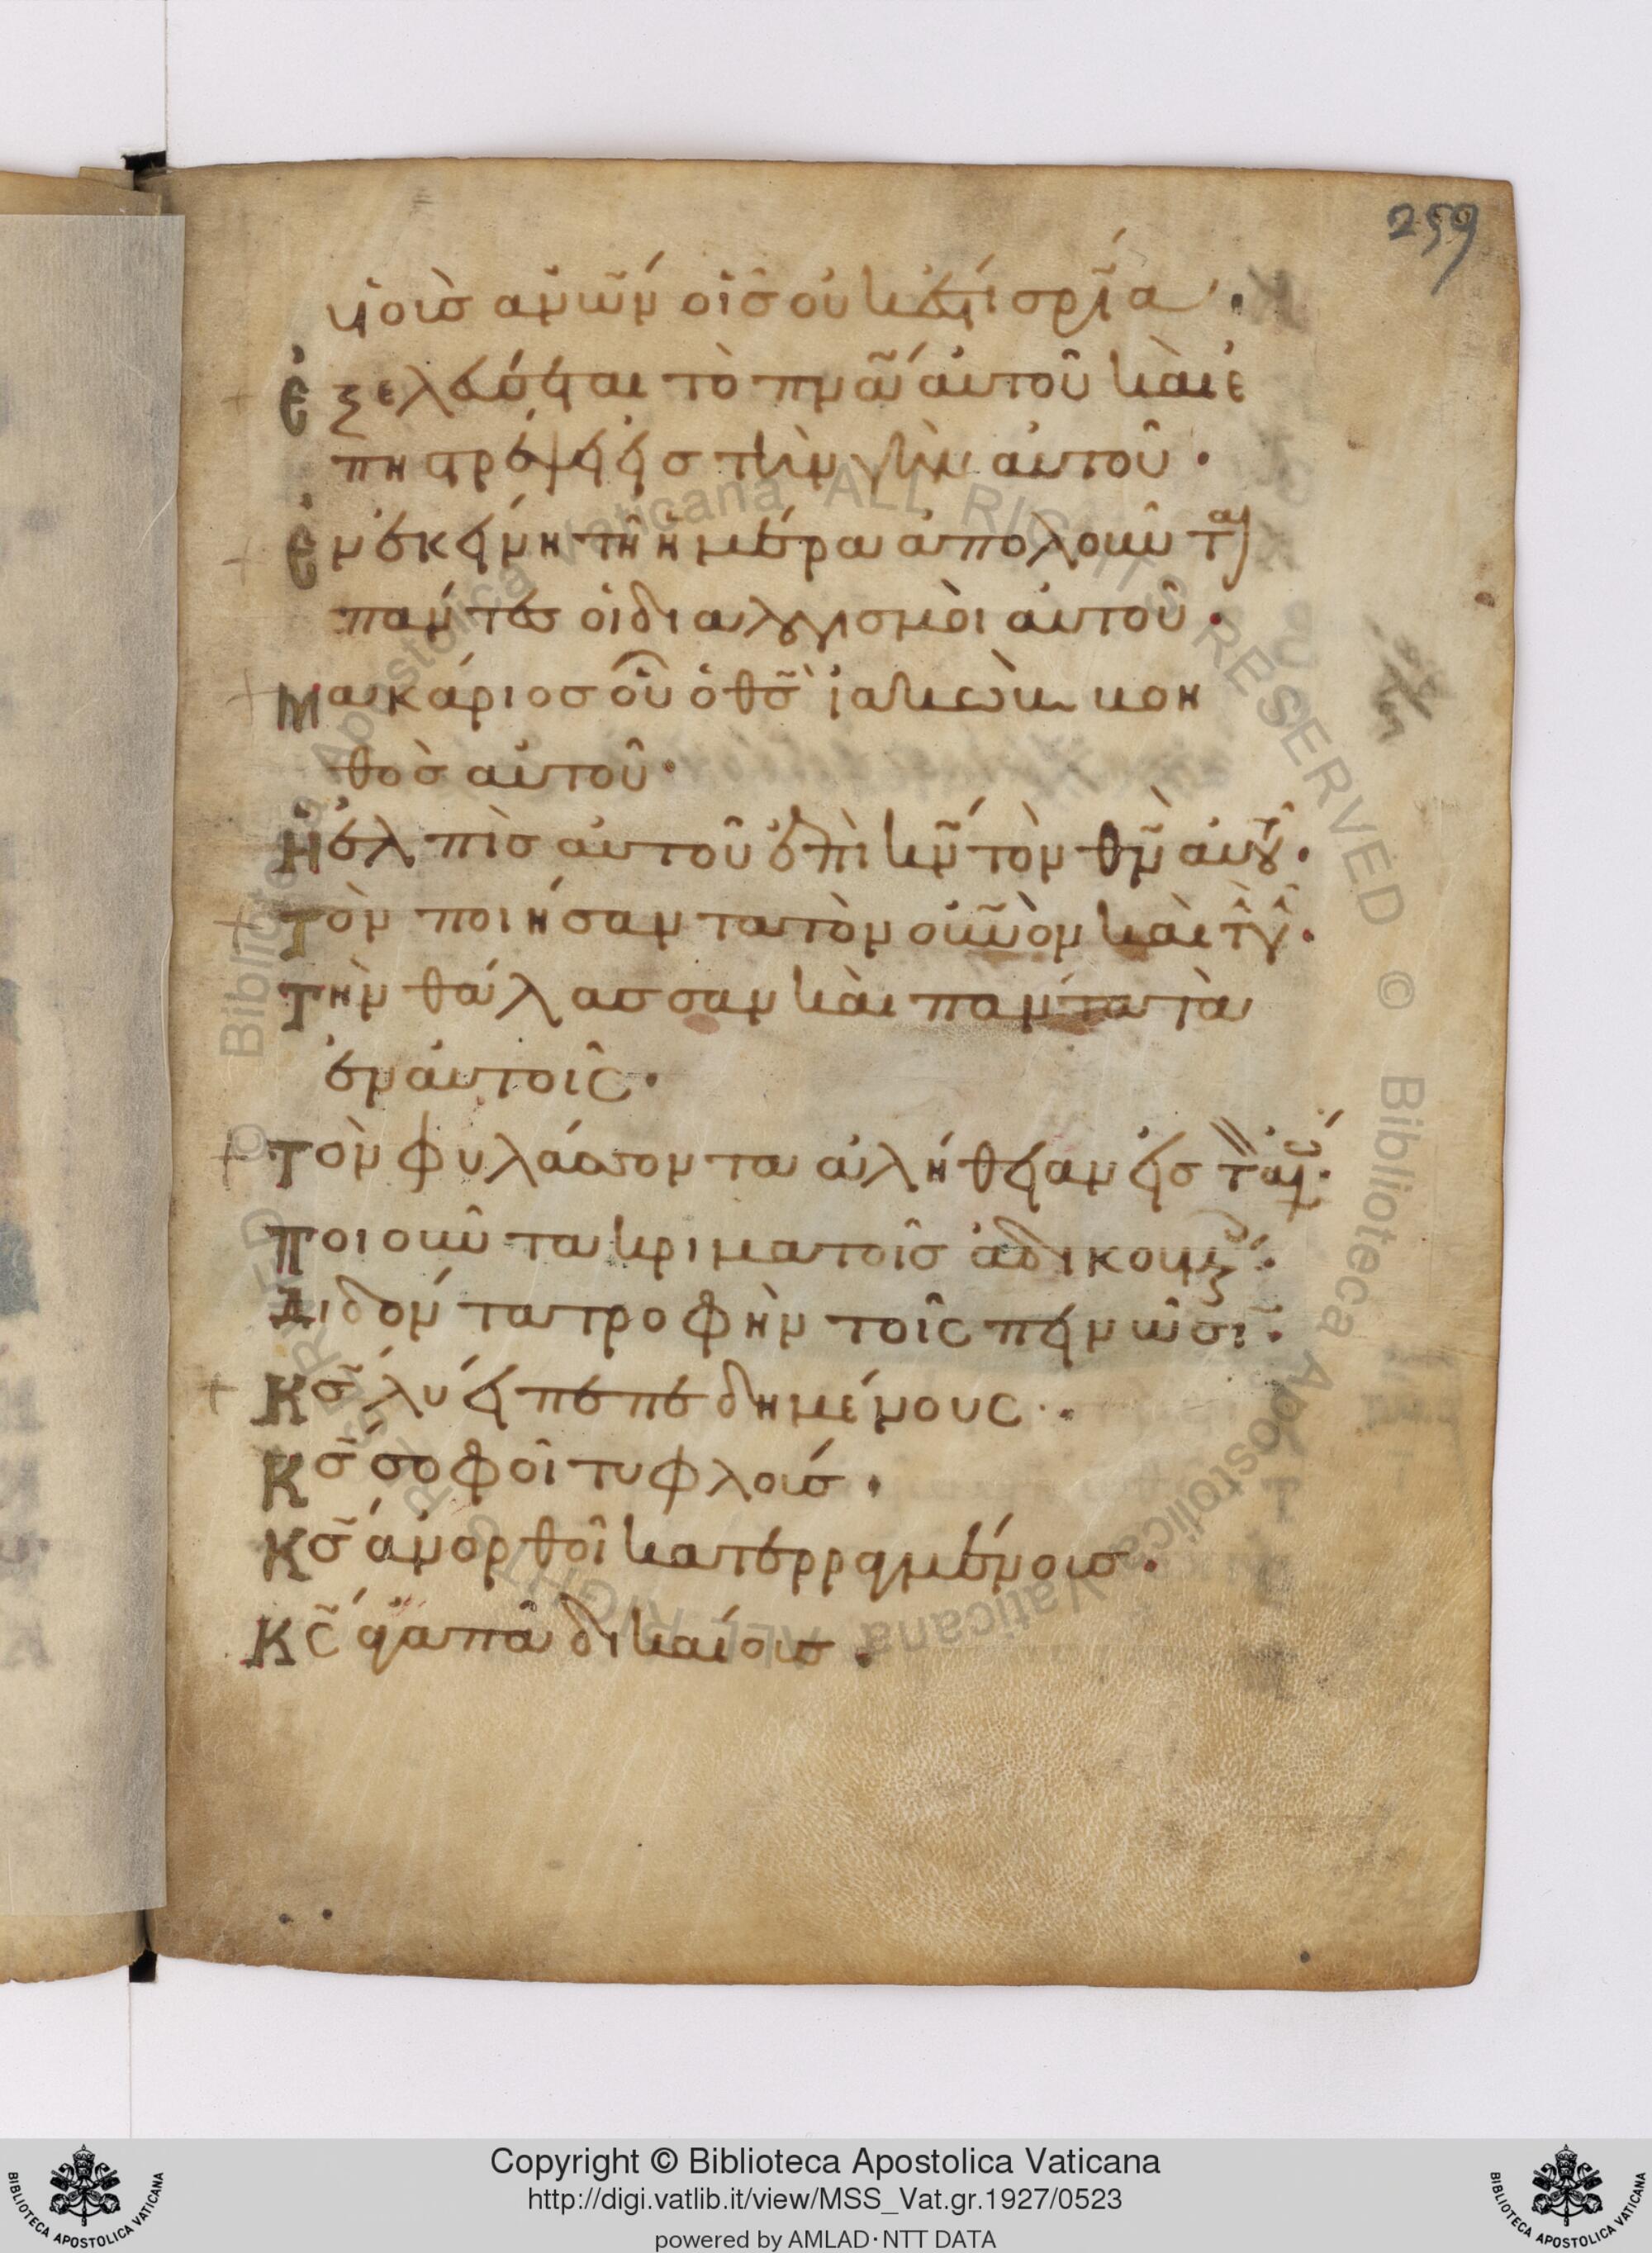 259
υἱοὺς ἀν̅ω̅ν οἷς οὐκ ἔστι σρ̅ία·
ἐξελεύσεται τὸ πν̅α̅ αὐτοῦ καὶ ἐ
πιστρέψει εἰς τὴν γῆν αὐτοῦ·
ἐν ἐκείνη τῆ ἡμέρα ἀπολοῦνται
πάντες οἱ διαλογισμοὶ αὐτοῦ·
Μακάριος οὗ ὁ θς̅ ἰακὼβ βοη
θὸς αὐτοῦ·
Ἡ ἐλπὶς αὐτοῦ ἐπὶ κν̅ τὸν θν̅ αὐτοῦ·
τὸν ποιήσαντα τὸν οὐν̅ὸν καὶ τὴν γῆν·
τὴν θάλασσαν καὶ πάντα τὰ
ἐν αὐτοῖς·
τὸν φυλάσσοντα ἀλήθειαν εἰς τὸν αἰῶνα·
ποιοῦντα κρίμα τοῖς ἀδικουμένοις·
διδόντα τροφὴν τοῖς πεινῶσι·
Κς̅ λύει πεπεδημένους·
Κς̅ σοφοῖ τυφλούς·
Κς̅ ἀνορθοῖ κατερραγμένους·
Κς̅ ἀγαπᾶ δικαίους·
Copyright © Biblioteca Apostolica Vaticana
http://digi.vatlib.it/view/MSS_Vat.gr.1927/0523
powered by AMLAD·NTT DATA
BIBLIOTECA APOSTOLICA VATICANA
BIBLIOTECA APOSTOLICA VATICANA
© Biblioteca Apostolica Vaticana ALL RIGHTS RESERVED © Biblioteca Apostolica Vaticana ALL RIGHTS RESERVED